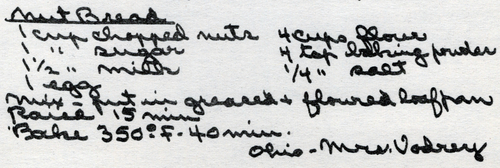 Nut Bread
1 cup chopped nuts 4 cups flour
1 " sugar 4 tsp baking powder
1 1/2 " milk 1/4 " salt
1 egg
Mix - put in greased + floured loaf pan
Raise 15 min
Bake 350° F - 40 min.
Ohio - Mrs. Vodrey